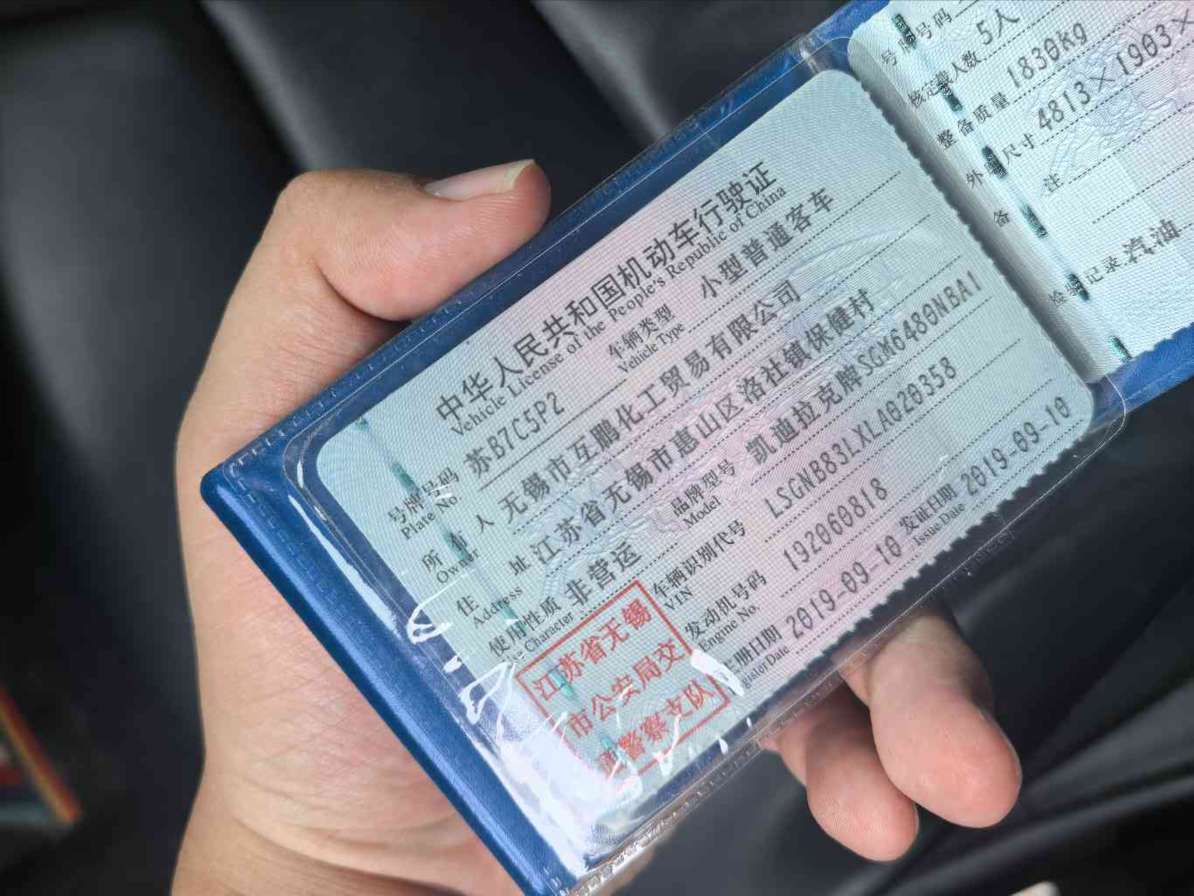 中华人民共和国机动车行驶证
Vehicle License of the People's Republic of China
号牌号码 苏B7C5P2 车辆类型 小型普通客车
Plate No. Vehicle Type
所有人 无锡市互鹏化工贸易有限公司
Owner
住址 江苏省无锡市惠山区洛社镇保健村
Address
使用性质 非营运 品牌型号 凯迪拉克牌SGM6480NBA1
Character Model
车辆识别代号 LSGNB83LXLA020358
VIN
发动机号码 192060818
Engine No.
注册日期 2019-09-10 发证日期 2019-09-10
Date Issue Date
江苏省无锡
市公安局交
警察支队
号牌号码
核定载人数 5人
整备质量 1830kg
外廓尺寸 4813×1903×
备注
检验记录 汽油